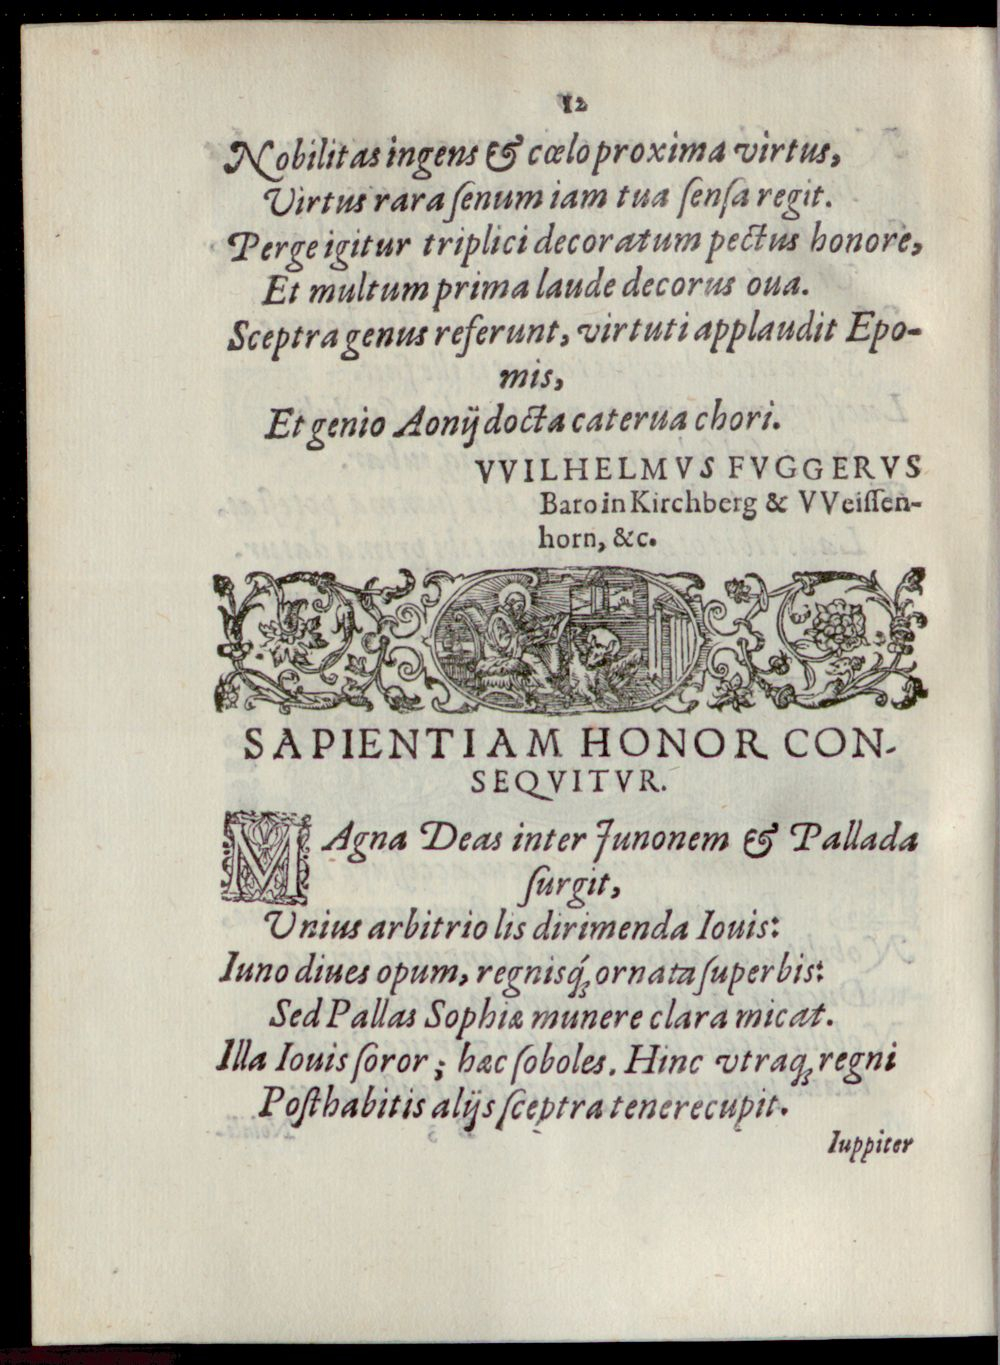 12
Nobilitas ingens & cœlo proxima virtus,
Virtus rara ſenum iam tua ſenſa regit.
Perge igitur triplici decoratum pectus honore,
Et multum prima laude decorus oua.
Sceptra genus referunt, virtuti applaudit Epo-
mis,
Et genio Aonij docta caterua chori.
VVILHELMVS FVGGERVS
Baro in Kirchberg & VVeiſſen-
horn, &c.
SAPIENTIAM HONOR CON-
SEQVITVR.
MAgna Deas inter Junonem & Pallada
ſurgit,
Vnius arbitrio lis dirimenda Iouis:
Iuno diues opum, regnisq́; ornata ſuperbis:
Sed Pallas Sophiæ munere clara micat.
Illa Iouis ſoror; hæc ſoboles. Hinc vtraq; regni
Poſthabitis alijs ſceptra tenere cupit.
Iuppiter